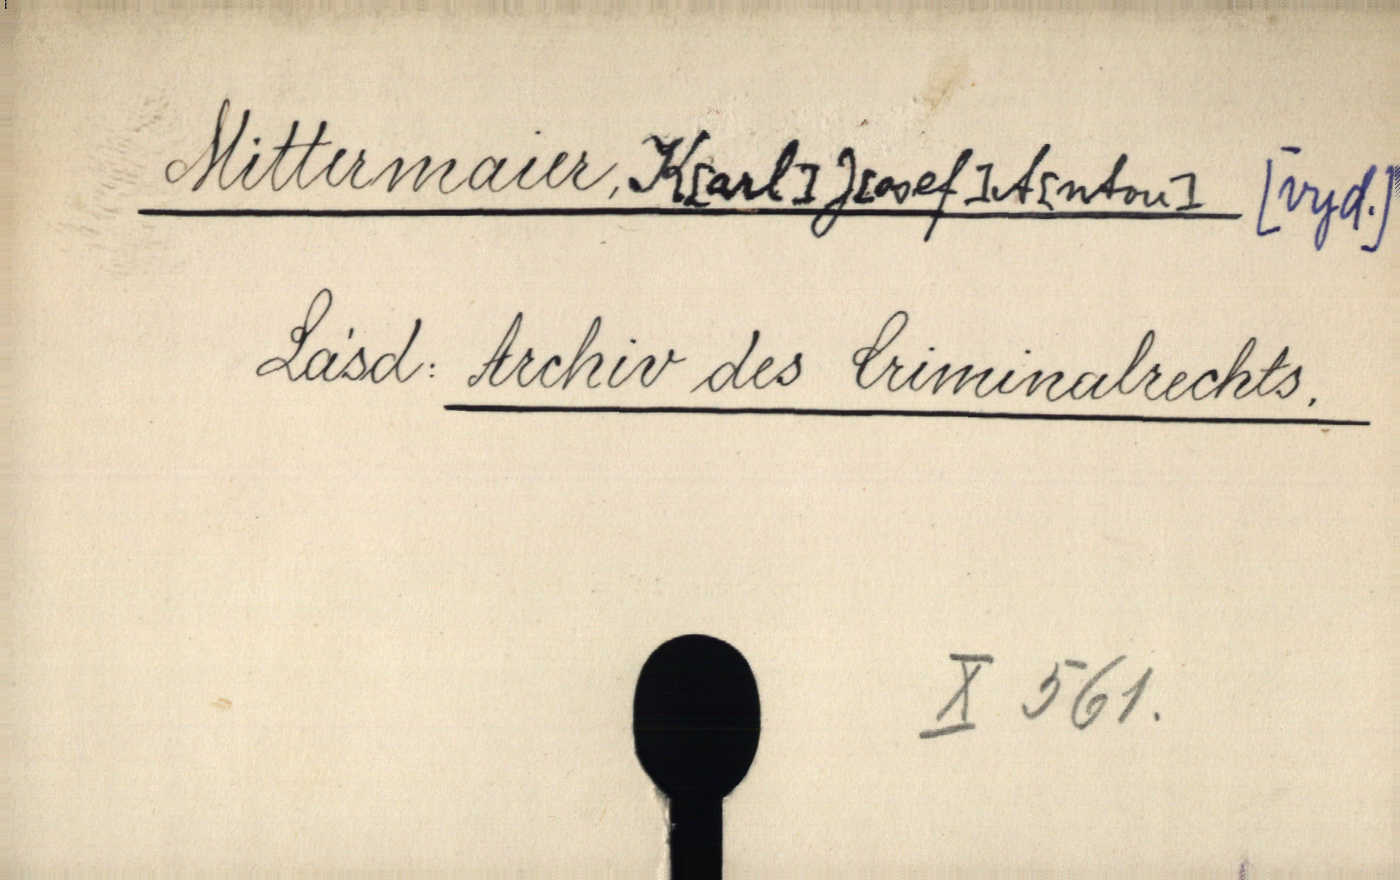 Mittermaier, K[arl] J[osef] A[nton] [vyd.]
Lásd: Archiv des Criminalrechts.
X 561.